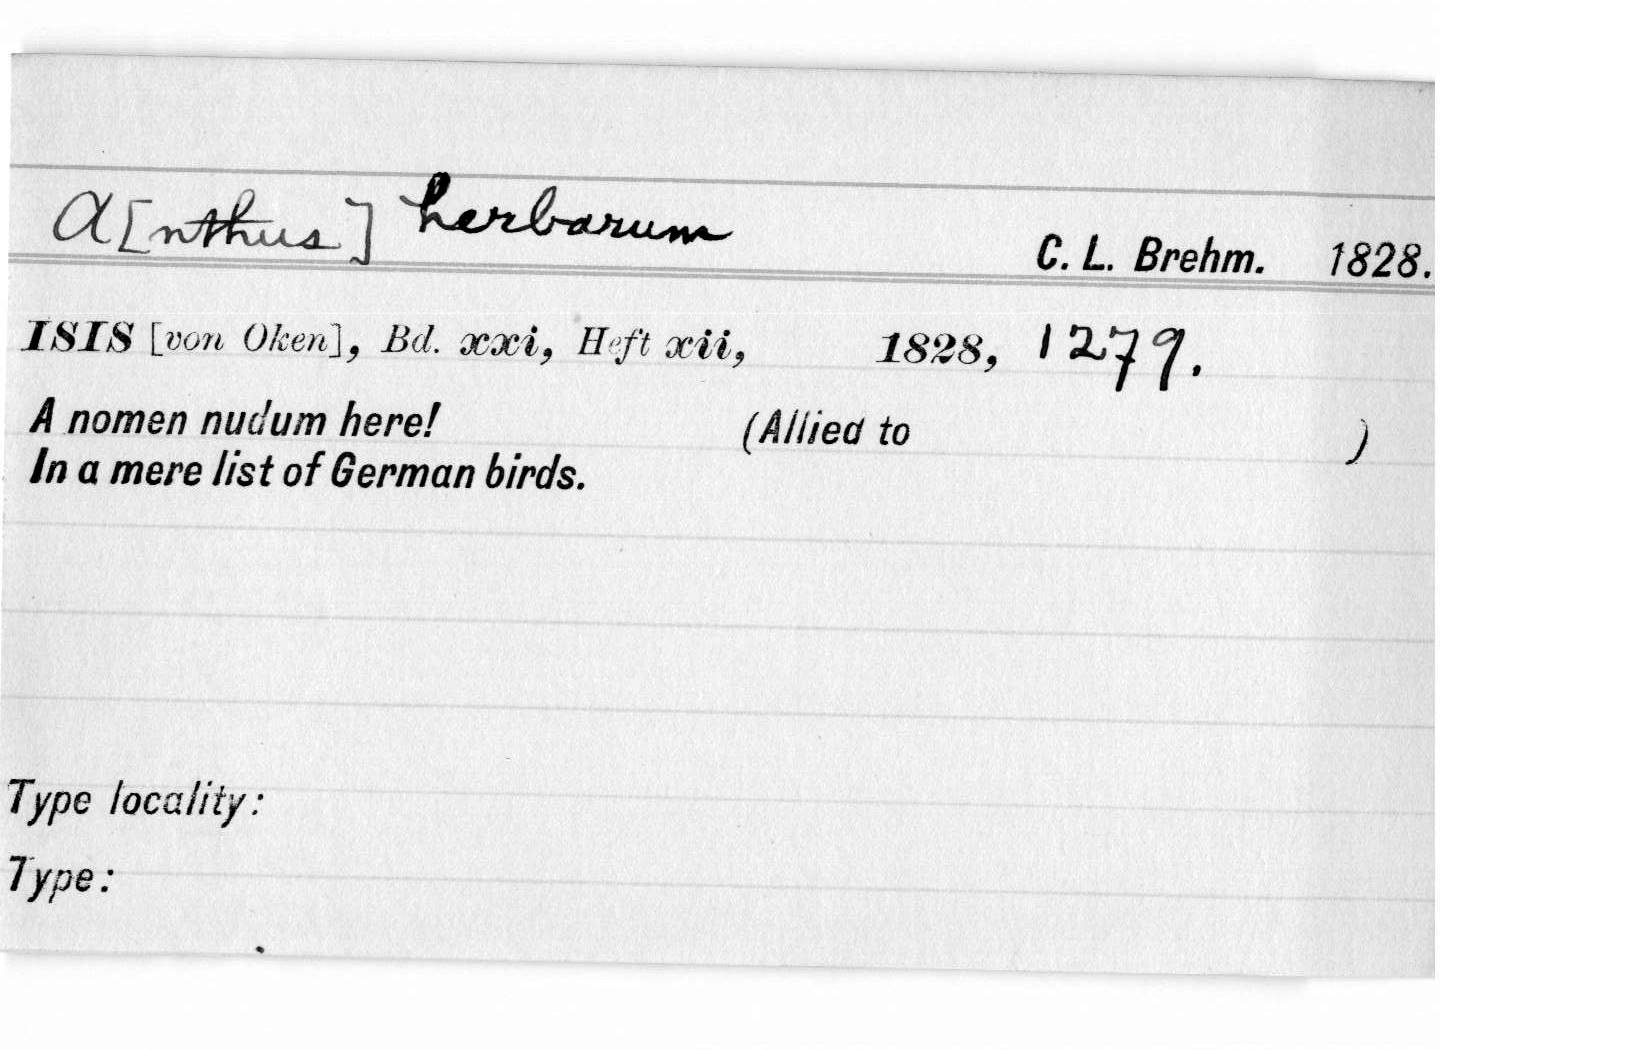 A[nthus] herbarum C. L. Brehm. 1828.
ISIS [von Oken], Bd. xxi, Heft xii, 1828, 1279.
A nomen nudum here! (Allied to )
In a mere list of German birds.
Type locality:
Type: